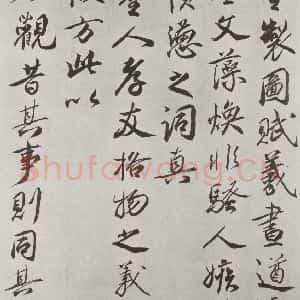 製圖賦羲畫遒
文藻煥於騷人嫉
之词真
人孝友格物之義
方此以
觀昔其事則同其
Shufawang.Cn